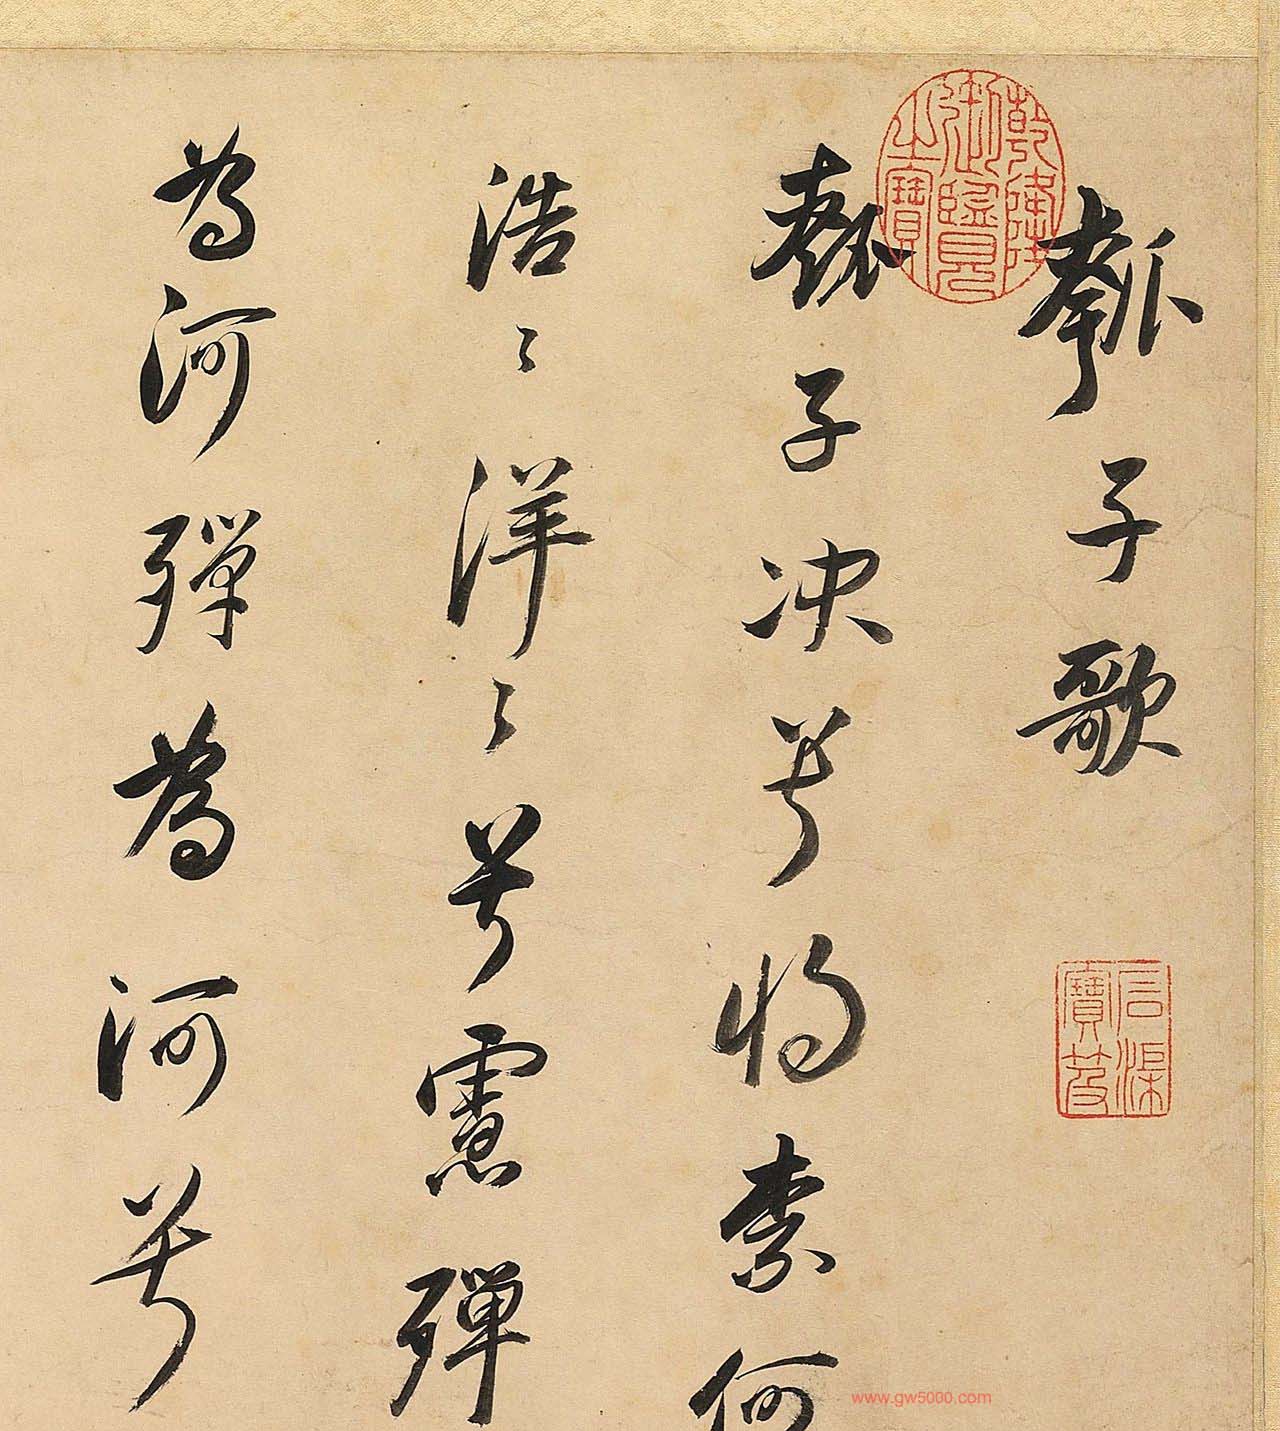 瓠子歌
瓠子决兮将柰何
浩〻洋〻兮慮殫
為河殫為河兮
乾隆御覽之寶
石渠寶笈
www.gw5000.com